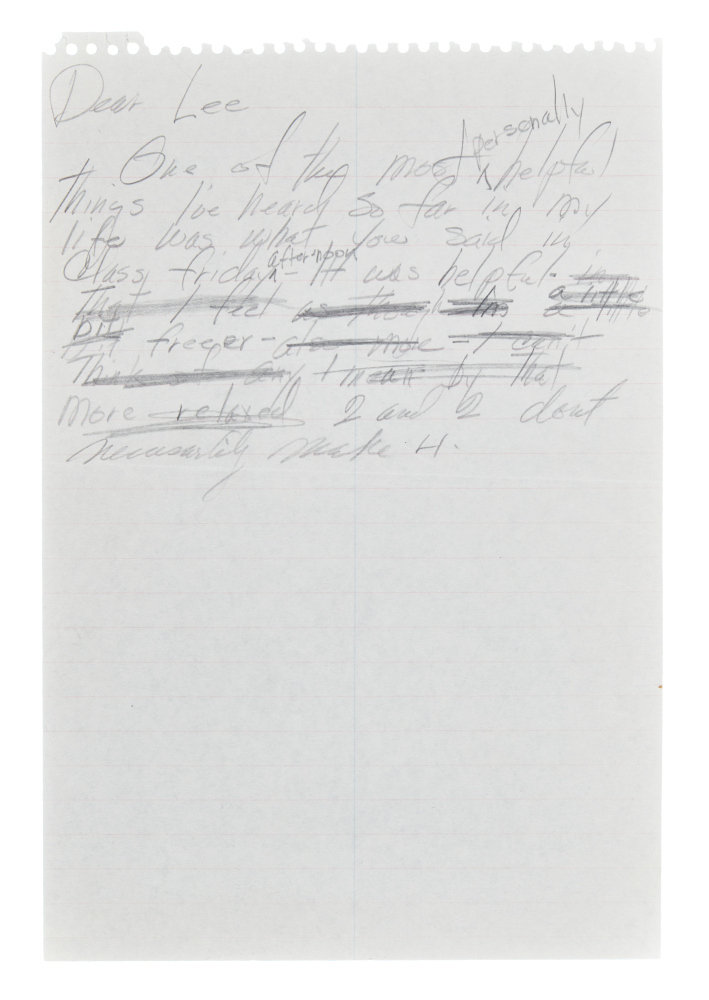 Dear Lee
One of the most personally helpful
things I've heard so far in my
life was what you said in
Class friday afternoon - It was helpful - in
that I feel as though Im a little a little
bit freeer - also more - I can't
Think of any I mean by that
more relaxed 2 and 2 dont
necessarily make 4.